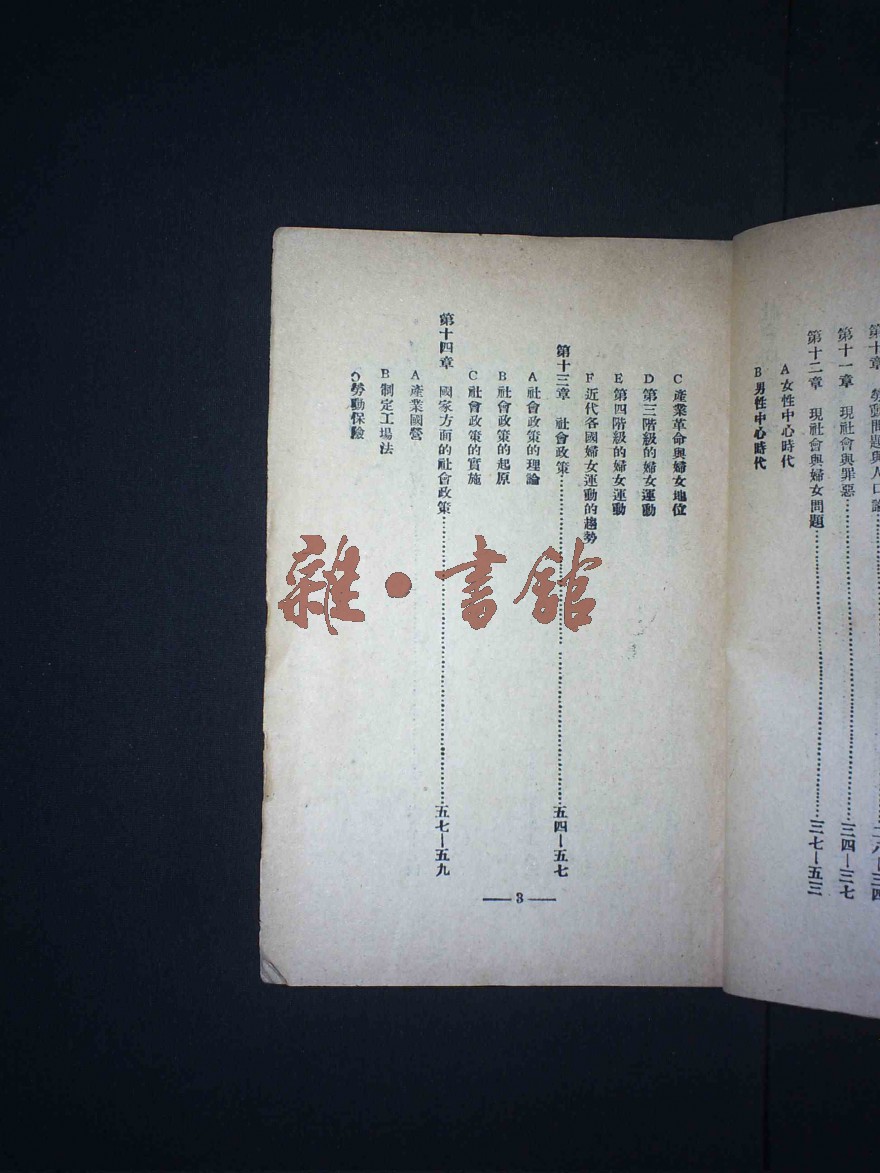 第十章　勞動問題與人口論……二八—三四
第十一章　現社會與罪惡……三四—三七
第十二章　現社會與婦女問題……三七—五三
A 女性中心時代
B 男性中心時代
C 產業革命與婦女地位
D 第三階級的婦女運動
E 第四階級的婦女運動
F 近代各國婦女運動的趨勢
第十三章　社會政策……五四—五七
A 社會政策的理論
B 社會政策的起原
C 社會政策的實施
第十四章　國家方面的社會政策……五七—五九
A 產業國營
B 制定工場法
C 勞動保險
— 3 —
雜·書館